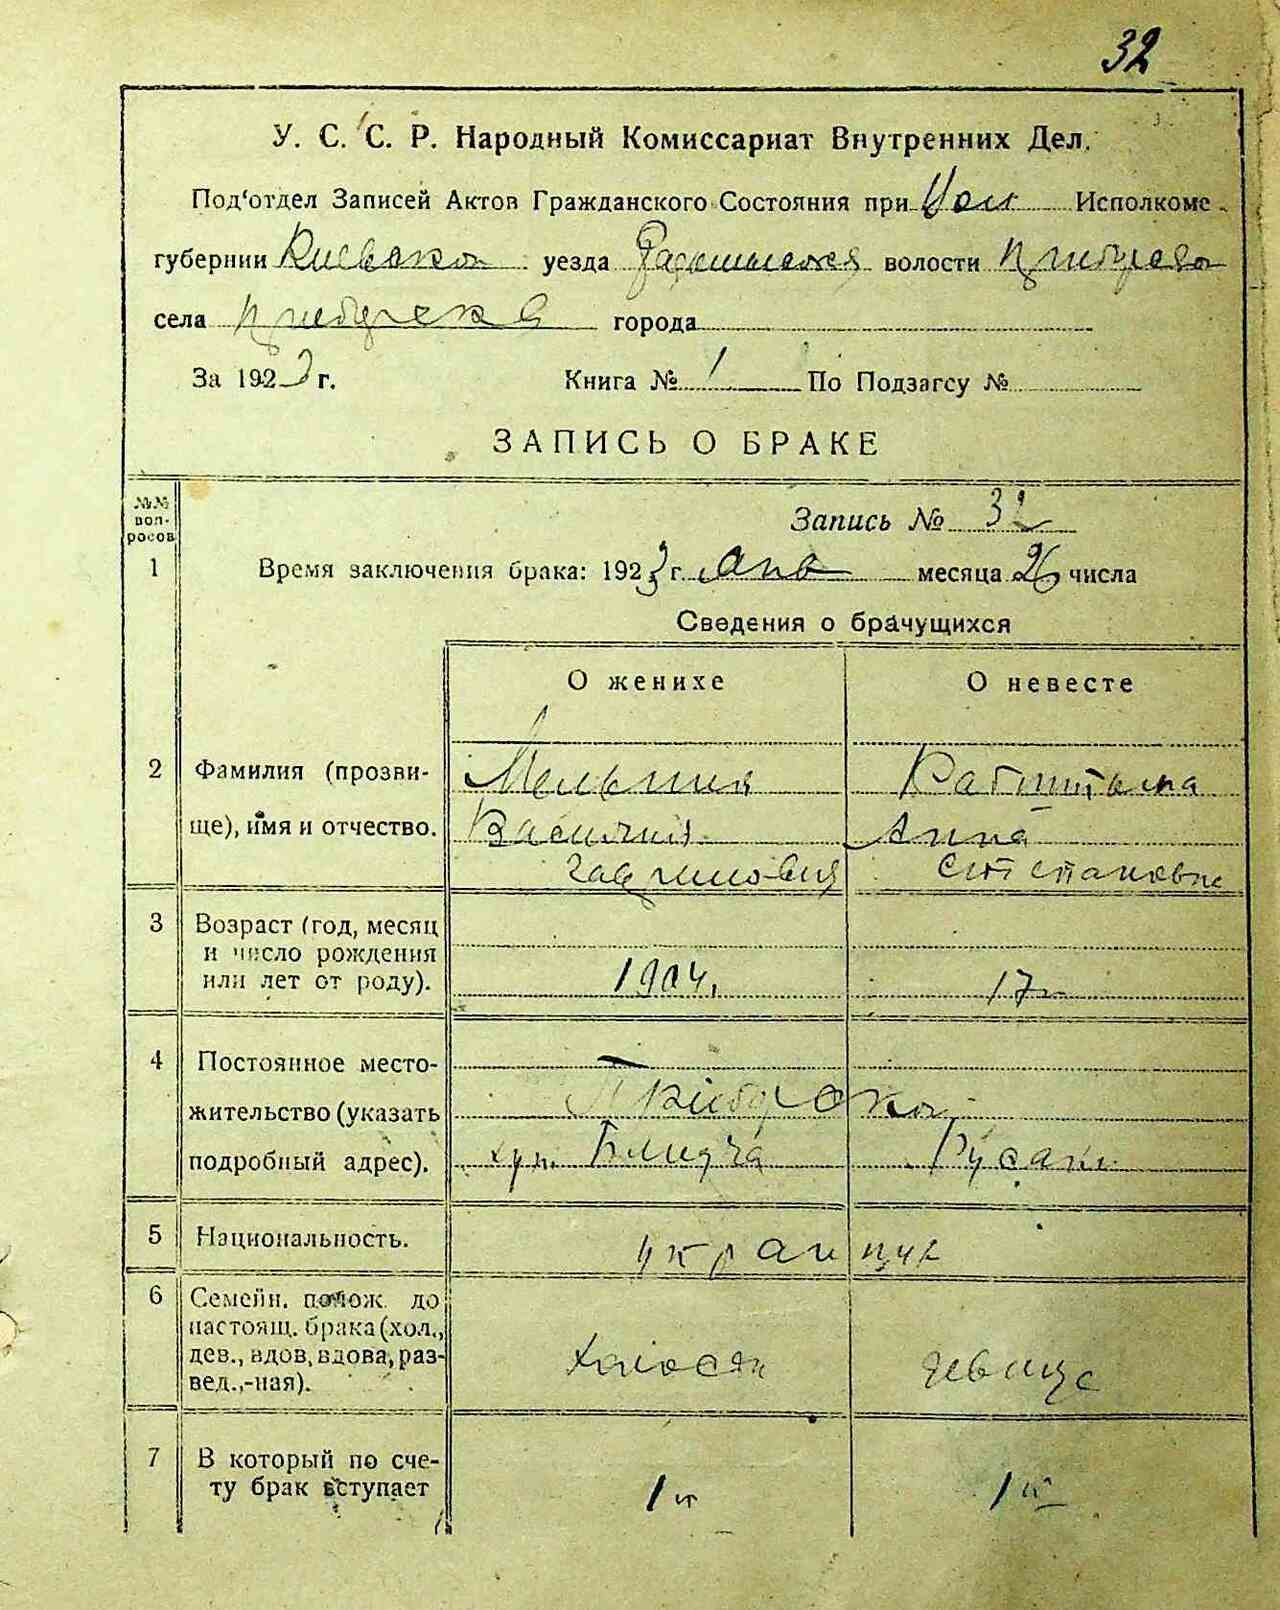 32
У. С. С. Р. Народный Комиссариат Внутренних Дел.
Под'отдел Записей Актов Гражданского Состояния при Исполкоме
губернии Киевской уезда волости
села города
За 1923 г. Книга № 1 По Подзагсу №
ЗАПИСЬ О БРАКЕ
№№ воп-росов
Запись № 32
1 Время заключения брака: 1923 г. янв месяца 26 числа
Сведения о брачущихся
О женихе О невесте
2 Фамилия (прозви-
ще), имя и отчество. Анна
Степановна
3 Возраст (год, месяц
и число рождения
или лет от роду). 1904. 17
4 Постоянное место-
жительство (указать
подробный адрес). хут. Блидча Русаки
5 Национальность. украинцы
6 Семейн. полож. до
настоящ. брака (хол.,
дев., вдов, вдова, раз-
вед.,-ная). холостяк девица
7 В который по сче-
ту брак вступает 1й 1й